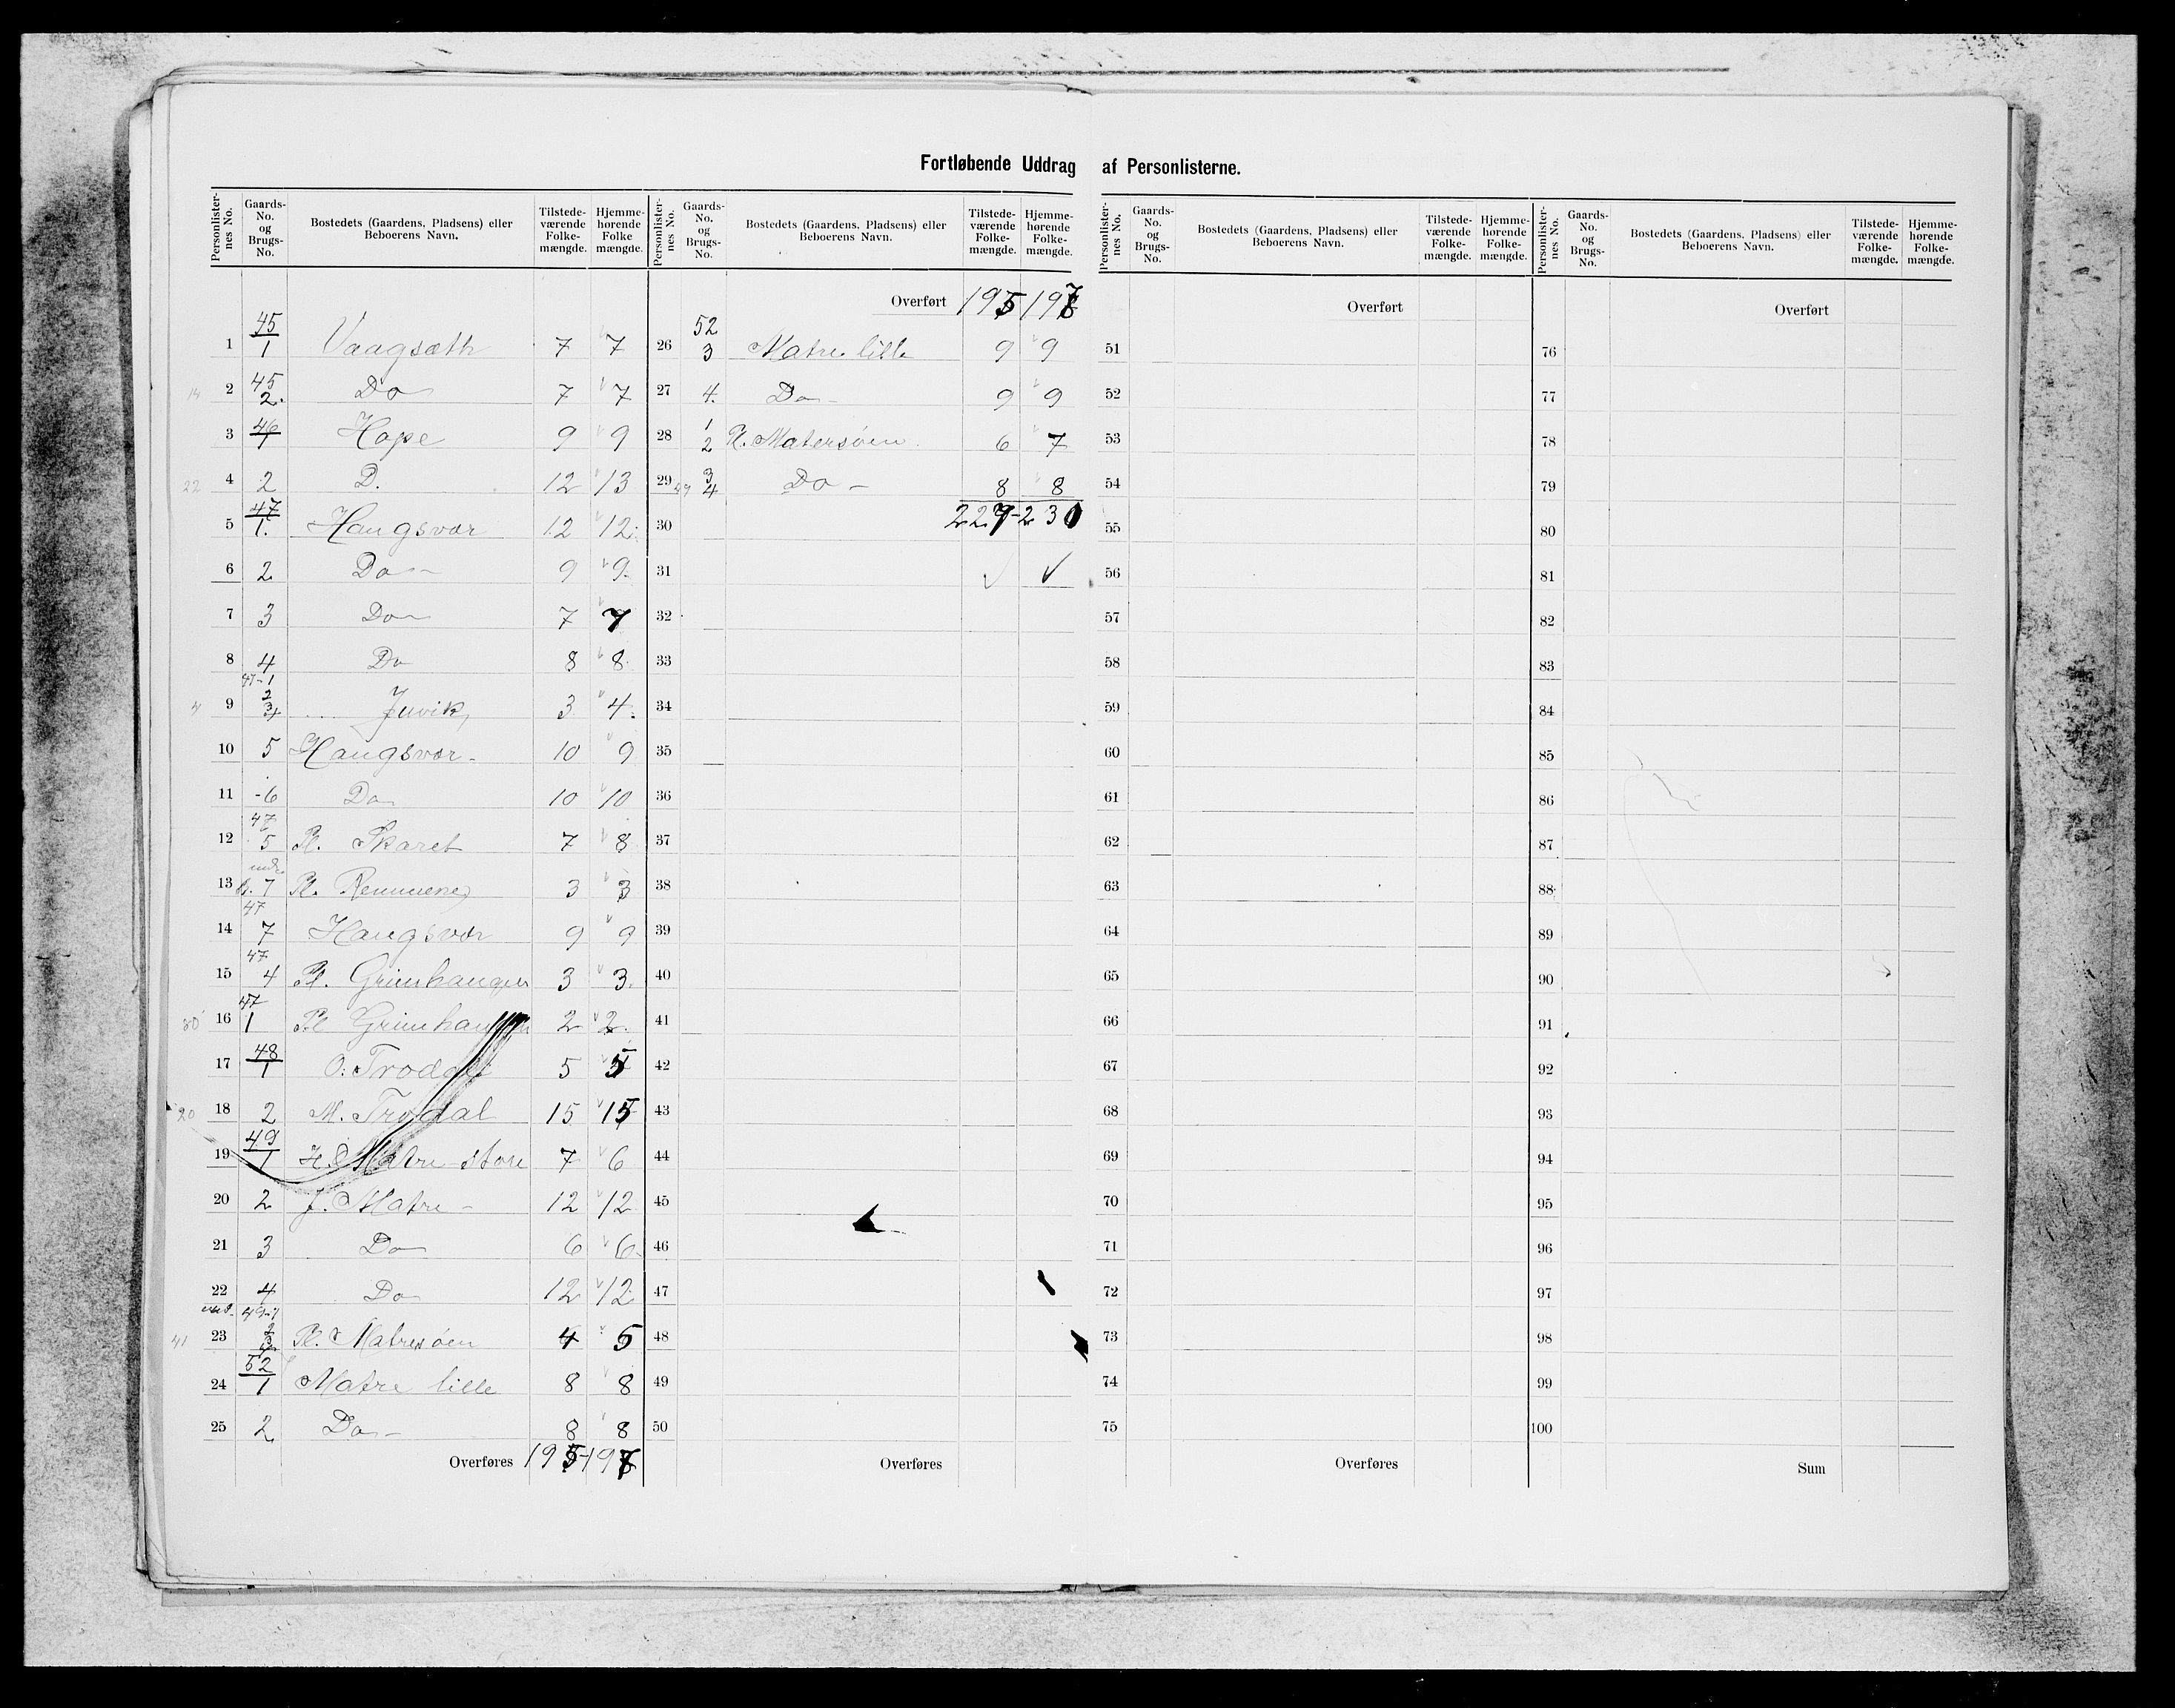 Fortløbende Uddrag af Personlisterne.
Personlisternes No. Gaards-No. og Brugs-No. Bostedets (Gaardens, Pladsens) eller Beboerens Navn. Tilstedeværende Folkemængde. Hjemmehørende Folkemængde.
1 45/1 Vaagsæth 7 7
14 2 45 2. Do 7 7
3 46/1 Hope 9 9
22 4 2 D. 12 13
5 47/1. Haugsvær 12 12
6 2 Do 9 9
7 3 Do 7 7
8 4 Do 8 8
4 9 47-1 2 3 4 Juvik 3 4
10 5 Haugsvær 10 9
11 -6 Do 10 10
12 47 5 Pl. Skaret 7 8
13 7 Pl. Remmene 3 3
14 47 7 Haugsvær 9 9
15 47 4 Pl. Grimhaugen 3 3.
16 47 1 Pl Grimhaugen 2 2.
17 48/1 O. Trodal 5 5
20 18 2 M. Trodal 15 15
19 49/1 Matre store 7 6
20 2 J. Matre - 12 12
21 3 Do 6 6
22 4 Do 12 12
41 23 49-1 2 3 Pl. Matresøen 4 5
24 52/1 Matre lille 8 8
25 2 Do - 8 8
Overføres 195 197
Personlisternes No. Gaards-No. og Brugs-No. Bostedets (Gaardens, Pladsens) eller Beboerens Navn. Tilstedeværende Folkemængde. Hjemmehørende Folkemængde.
Overført 195 197
26 52 3 Matre lille 9 9
27 4. Do - 9 9
28 1 2 Pl. Matersøen 6 7
29 3 4 Do - 8 8
30 227-230
31
32
33
34
35
36
37
38
39
40
41
42
43
44
45
46
47
48
49
50
Overføres
Personlisternes No. Gaards-No. og Brugs-No. Bostedets (Gaardens, Pladsens) eller Beboerens Navn. Tilstedeværende Folkemængde. Hjemmehørende Folkemængde.
Overført
51
52
53
54
55
56
57
58
59
60
61
62
63
64
65
66
67
68
69
70
71
72
73
74
75
Overføres
Personlisternes No. Gaards-No. og Brugs-No. Bostedets (Gaardens, Pladsens) eller Beboerens Navn. Tilstedeværende Folkemængde. Hjemmehørende Folkemængde.
Overført
76
77
78
79
80
81
82
83
84
85
86
87
88
89
90
91
92
93
94
95
96
97
98
99
100
Sum